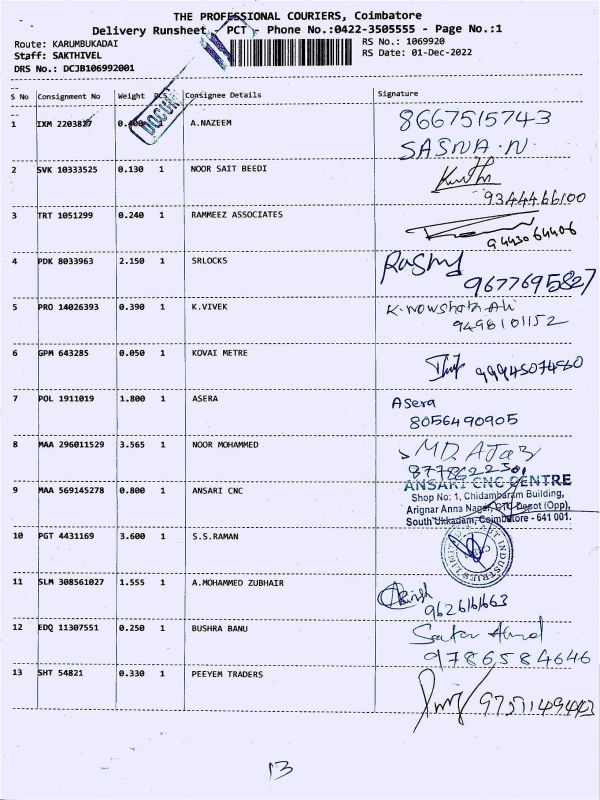 THE PROFESSIONAL COURIERS, Coimbatore
Delivery Runsheet - PCT - Phone No.:0422-3505555 - Page No.:1
Route: KARUMBUKADAI
RS No.: 1069920
Staff: SAKTHIVEL
RS Date: 01-Dec-2022
DRS No.: DCJB106992001
S No Consignment No Weight PCS Consignee Details Signature
1 IXM 2203827 A.NAZEEM 8667515743
SASNA.N.
2 SVK 10333525 0.130 1 NOOR SAIT BEEDI
9344466100
3 TRT 1051299 0.240 1 RAMMEEZ ASSOCIATES
9443064406
4 PDK 8033963 2.150 1 SRLOCKS
9677695827
5 PRO 14026393 0.390 1 K.VIVEK K. Nowshath Ali
9498101152
6 GPM 643285 0.050 1 KOVAI METRE
7 POL 1911019 1.800 1 ASERA Asera
8056490905
8 MAA 296011529 3.565 1 NOOR MOHAMMED MD. AJAZ
9 MAA 569145278 0.800 1 ANSARI CNC ANSARI CNC CENTRE
Shop No: 1, Chidambaram Building,
Arignar Anna Nagar, CTC Depot (Opp),
South Ukkadam, Coimbatore - 641 001.
10 PGT 4431169 3.600 1 S.S.RAMAN
11 SLM 308561027 1.555 1 A.MOHAMMED ZUBHAIR
9626161663
12 EDQ 11307551 0.250 1 BUSHRA BANU
9786584646
13 SHT 54821 0.330 1 PEEYEM TRADERS
13